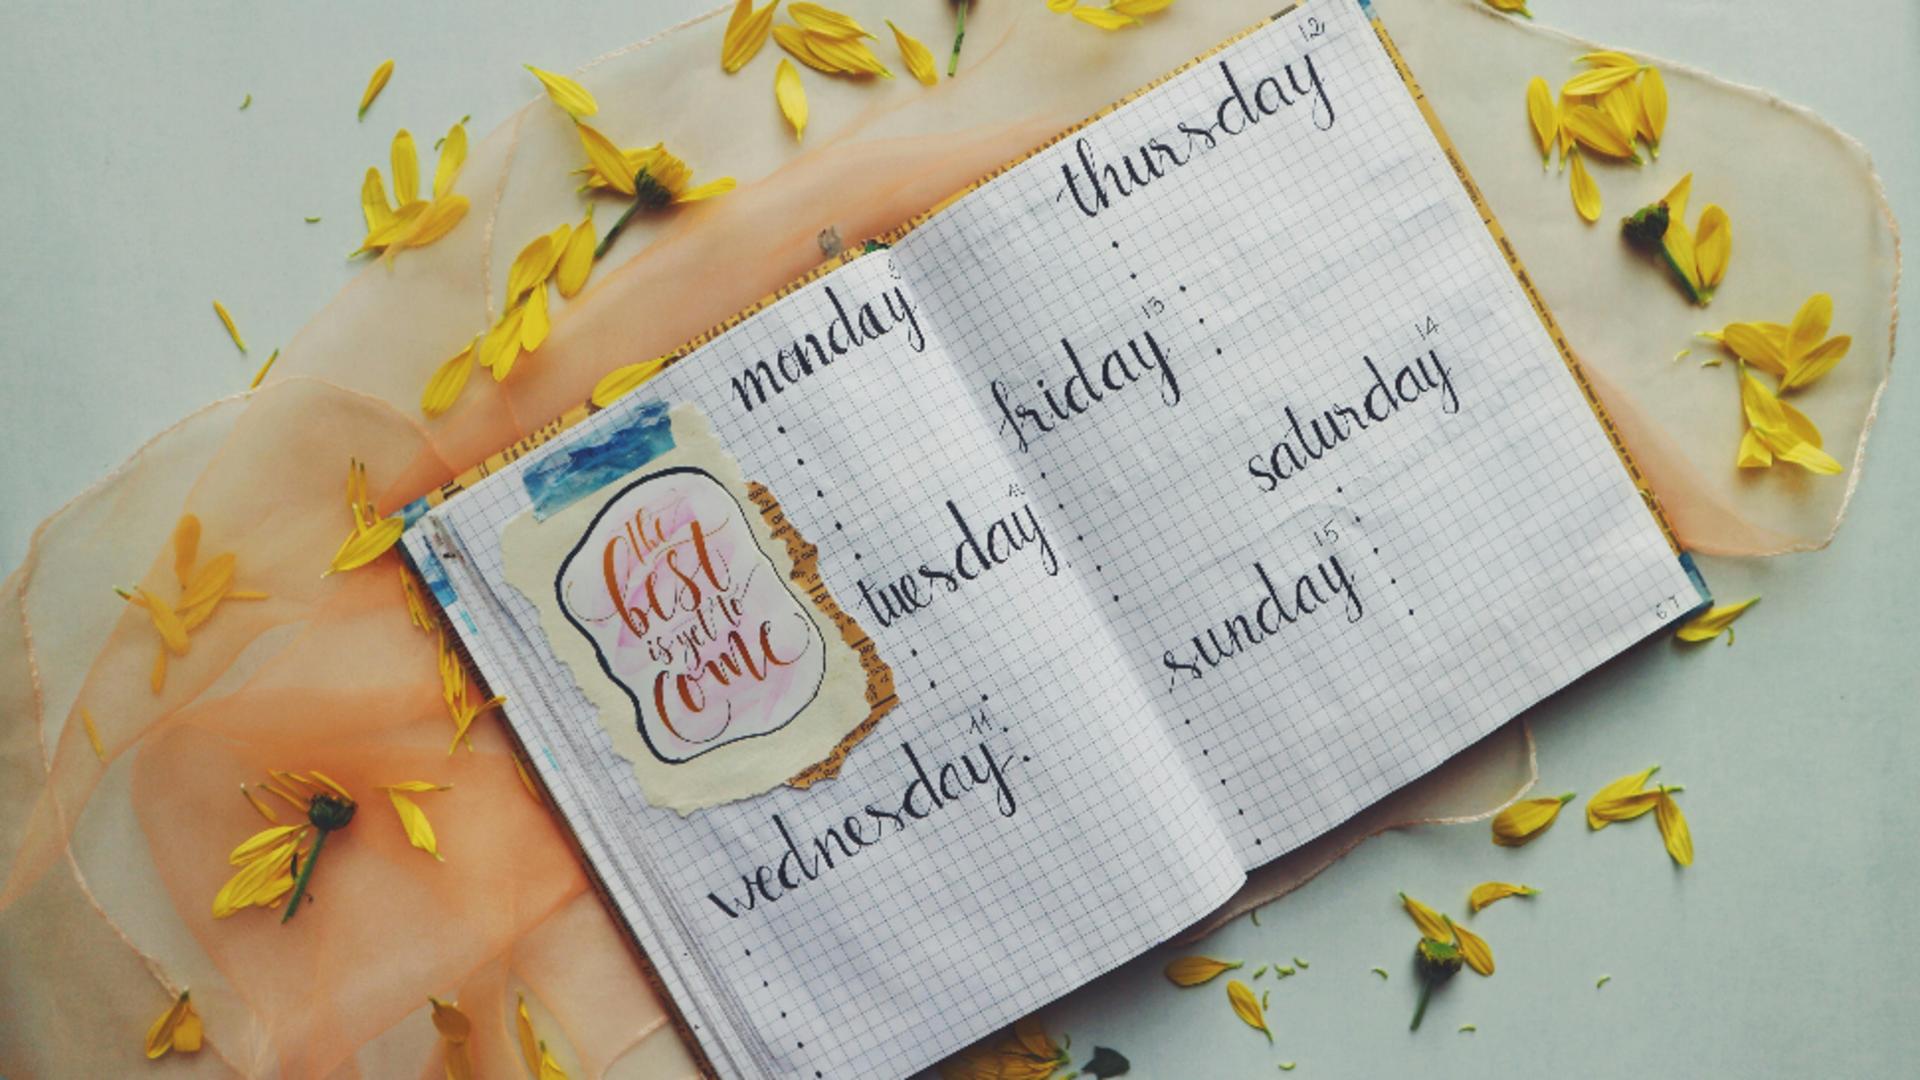 monday
the
best
is yet to
come
tuesday
11
wednesday
12
thursday
13
friday
14
saturday
15
sunday
67